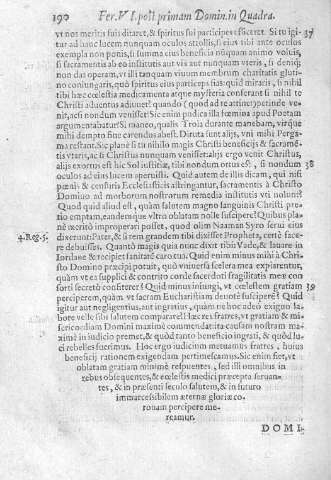 190 Fer. VI. post primam Domin. in Quadra.
vt nos meritis sui ditaret, & spiritus sui participes efficeret. Si tu igi- 37
tur ad hanc lucem nunquam oculos attollis, si eius tibi ante oculos
exempla non ponis, si summa eius beneficia nunquam animo voluis,
si sacramentis ab eo institutis aut vix aut nunquam vteris, si deniq;
non das operam, vt illi tanquam viuum membrum charitatis gluti-
no coniungaris, quò spiritus eius particeps sias: quid miraris, si nihil
tibi hæc cœlestia medicamenta atque mysteria conferant si nihil te
Christi aduentus adiuuet? quando (quod ad te attinet) perinde ve-
nit, ac si nondum venisset? Sic enim pudica illa fœmina apud Poetam
argumentabatur: Si maneo, qualis Troia durante manebam, virq́ue
mihi dempto fine carendus abest. Diruta sunt alijs, vni mihi Perga-
ma restant. Sic planè si tu nihilo magis Christi beneficijs & sacramẽ-
tis vteris, ac si Christus nunquam venisset: alijs ergo venit Christus,
alijs exortus est hic Sol iustitiæ, tibi nondum ortus est, si nondum 38
oculos ad eius lucem aperuisti. Quid autem de illis dicam, qui nisi
pœnis & censuris Ecclesiasticis astringantur, sacramentis à Christo
Domino ad morborum nostrorum remedia institutis vti nolunt?
Quod quid aliud est, quàm salutem magno sanguinis Christi pre-
tio emptam, eandemque vltro oblatam nolle suscipere? Quibus pla-
nè meritò improperari posset, quod olim Naaman Syro serui eius
4. Reg. 5. dixerunt: Pater, & si rem grandem tibi dixisset Propheta, certè face-
re debuisses. Quantò magis quia nunc dixit tibi Vade, & lauare in
Iordane & recipiet sanitatẽ caro tua? Quid enim minus nihil à Chri-
sto Domino præcipi potuit, quò vniuersa scelera mea expiarentur,
quàm vt ea supplici & contrito corde sacerdoti fragilitatis meæ con
sorti secretò confiterer? Quid minus iniungi, vt cœlestem gratiam 39
perciperem, quàm vt sacram Eucharistiam deuotè susciperẽ? Quid
igitur aut negligentius, aut ingratius, quàm ne hoc adeò exiguo la-
bore velle tibi salutem comparare? Hæc res fratres, vt gratiam & mi-
sericordiam Domini maximè commendat: ita causam nostram ma-
ximè in iudicio premet, & quòd tanto beneficio ingrati, & quòd lu-
ci rebelles fuerimus. Hoc ergo iudicium metuamus fratres, huius
beneficij rationem exigendam pertimescamus. Sic enim fiet, vt
oblatam gratiam minimè respuentes, sed illi omnibus in
rebus obsequentes, & cœlestis medici præcepta seruan-
tes, & in præsenti seculo salutem, & in futuro
immarcessibilem æternæ gloriæ co-
ronam percipere me-
reamur.
DOMI-